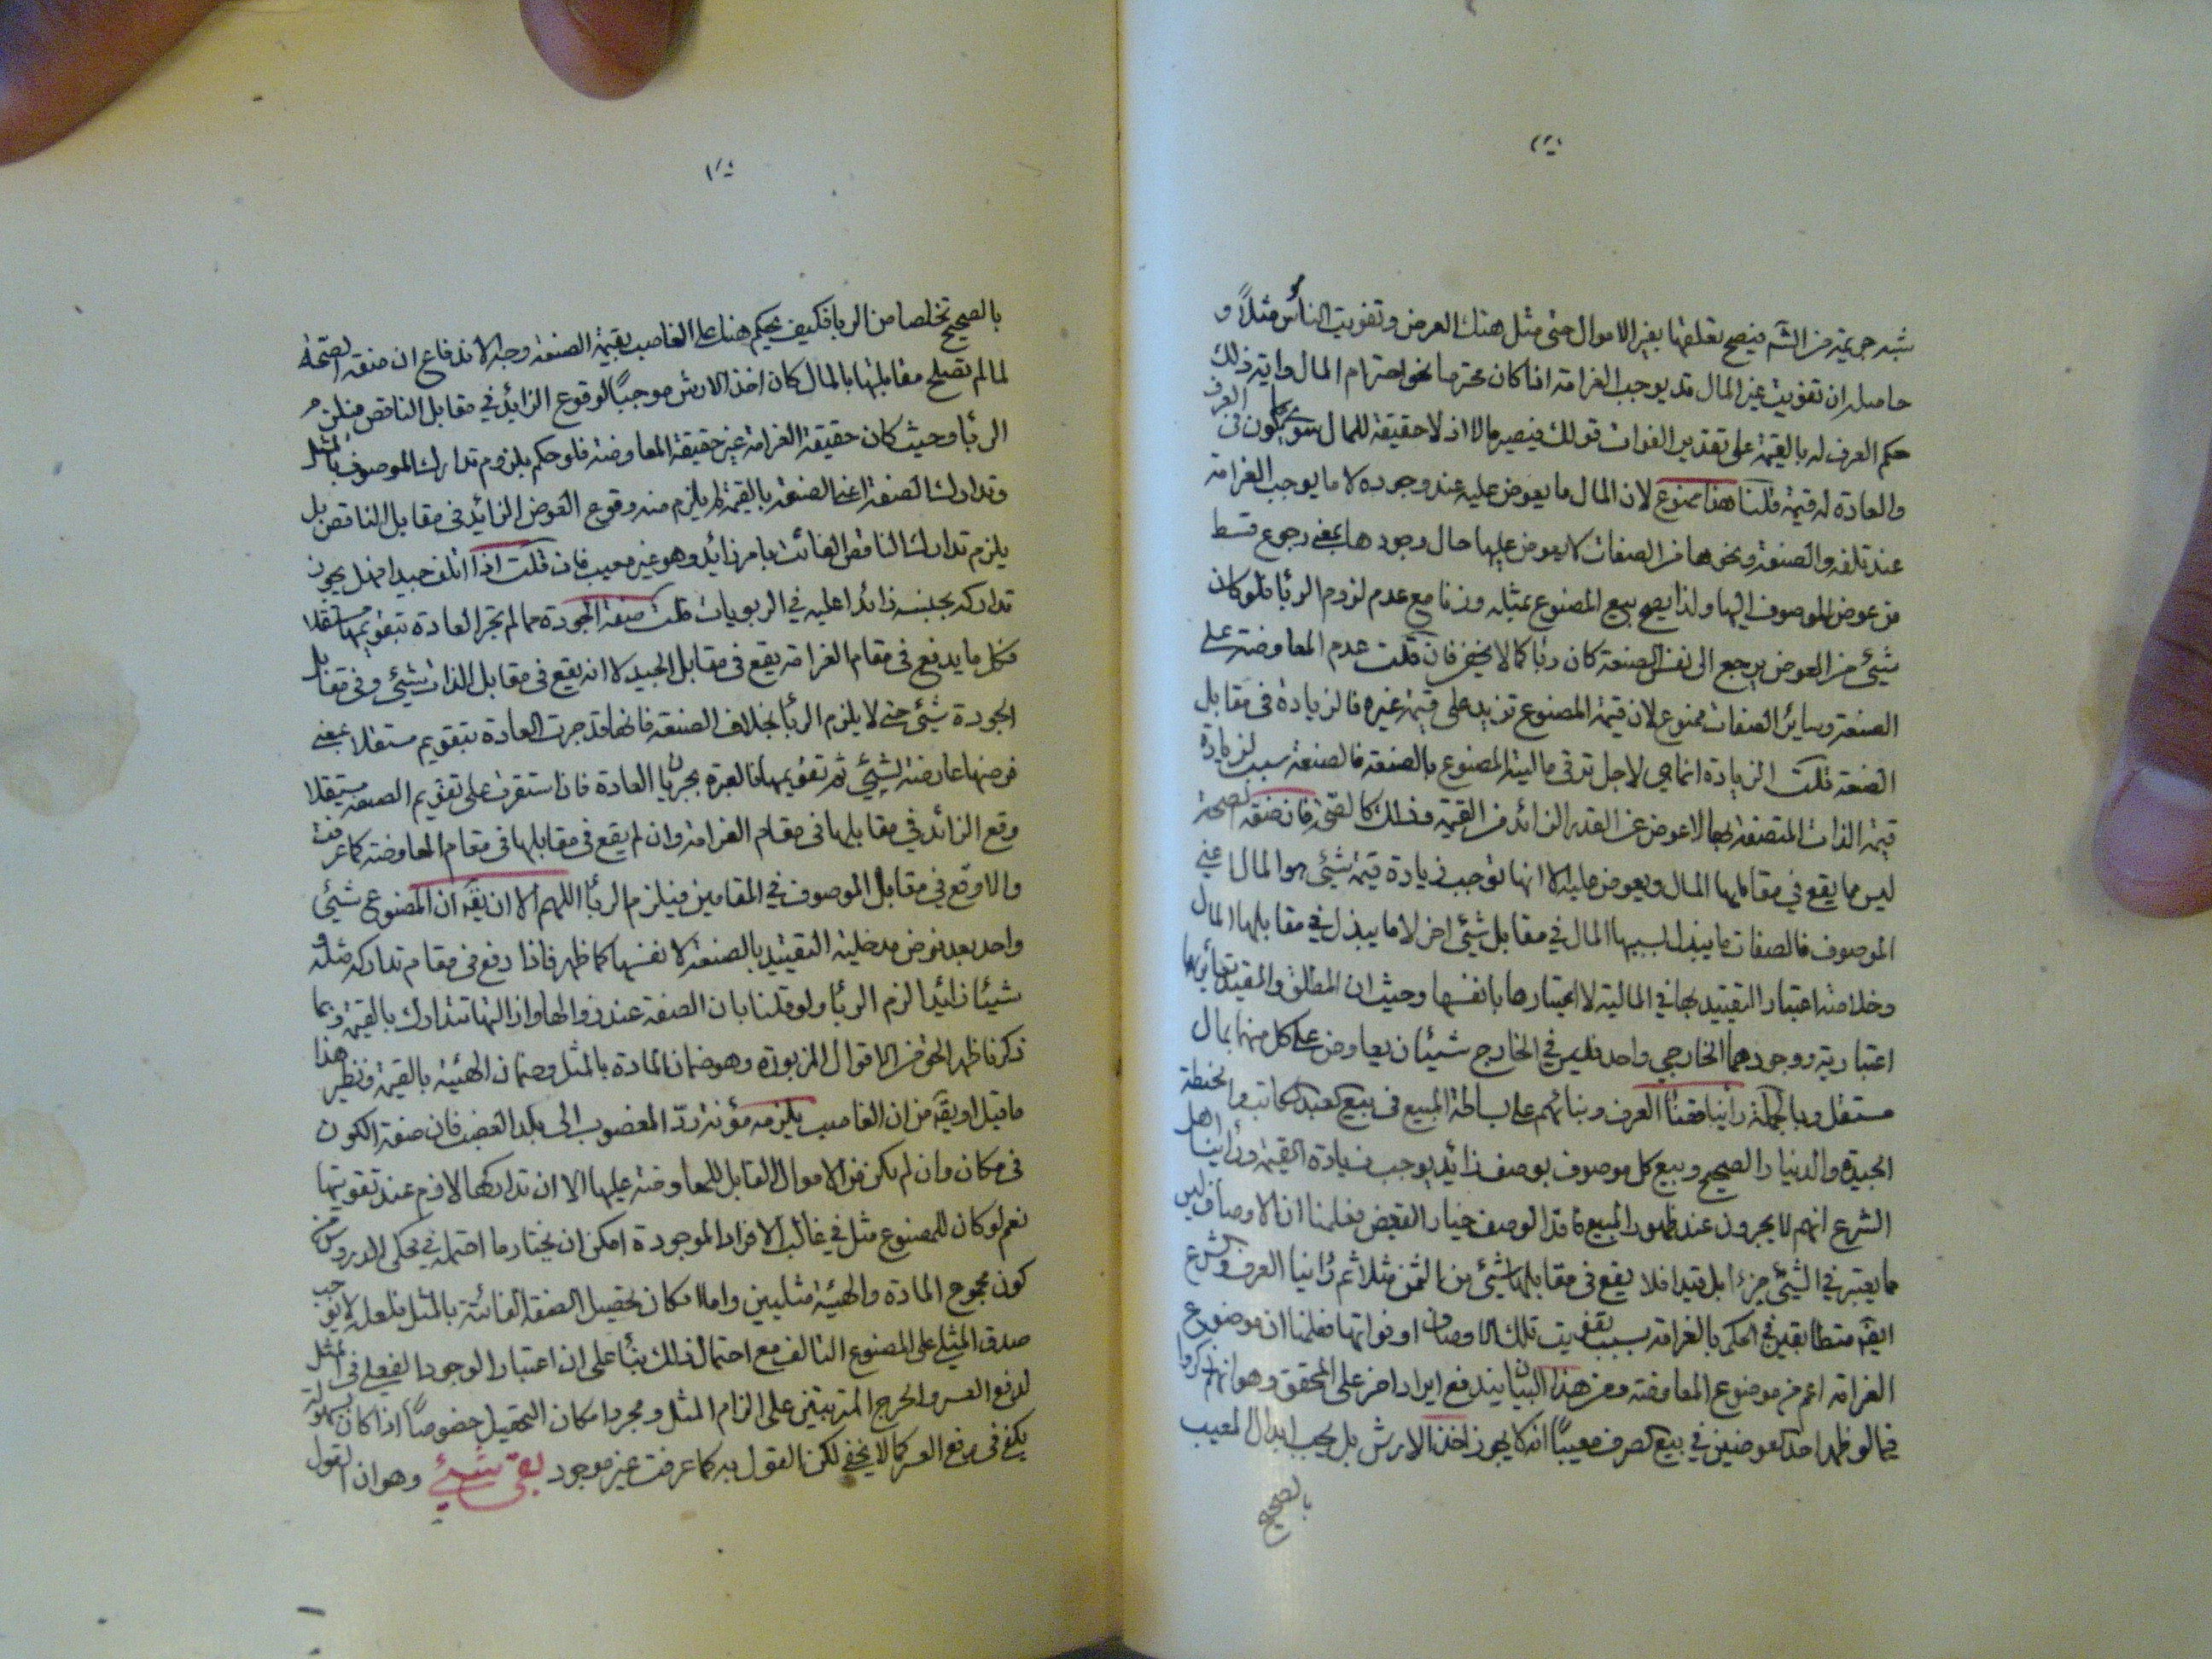 شبهة جريمة من الشم فيصح تعلقها بغير الاموال حتى مثل هتك العرض وتفويت الناس مثلاً و
حاصله ان تفويت غير المال قد يوجب الغرامة اذا كان محترما نحو احترام المال واية ذلك
حكم العرف له بالقيمة على تقدير الفوات قولك فيصير مالا اذ لا حقيقة للمال سوى يكون فى العرف
والعادة له قيمة قلنا هذا ممنوع لان المال ما يعوض عليه عند وجوده لا ما يوجب الغرامة
عند تلفه والصنعة ونحوها من الصفات لا يعوض عليها حال وجودها بمعنى رجوع قسط
من عوض الموصوف اليها ولذا يصح بيع المصنوع بمثله وزنا مع عدم لزوم الربا فلو كان
شيئ من العوض يرجع الى نفس الصنعة كان ربا كما لا يخفى فان قلت عدم المعاوضة على
الصنعة وساير الصفات ممنوع لان قيمة المصنوع تزيد على قيمة غيره فالزيادة فى مقابل
الصنعة قلت الزيادة انما هى لاجل ترقى مالية المصنوع بالصنعة فالصنعة سبب لزيادة
قيمة الذات المتصفة بها لا عوض عن القدر الزائد من القيمة وذلك كالصحة فان صفة الصحة
ليس مما يقع في مقابلها المال ويعوض عليه الا انها توجب زيادة قيمة شيئ هو المال اعنى
الموصوف فالصفات ما يبذل بسببها المال في مقابل شيئ اخر لا ما يبذل في مقابلها المال
وخلاصته اعتبار التقييد بها في المالية لا اعتبارها بانفسها وحيث ان المطلق والمقيد تغايرهما
اعتبارية ووجودهما الخارجي واحد فليس في الخارج شيئان يعاوض على كل منهما بمال
مستقل وبالجملة راينا العرف وبنائهم على بساطة المبيع فى بيع كعبد الكاتب والحنطة
الجيدة والدينار الصحيح وبيع كل موصوف بوصف زائد يوجب زيادة القيمة وراينا اهل
الشرع انهم لا يجرون عند ظهور المبيع فاقد الوصف خيار التبعض فعلمنا ان الاوصاف ليس
مما يعتبر في الشيئ جزءا بل قيدا فلا يقع فى مقابلها شيئ من الثمن مثلا ثم راينا العرف والشرع
ايضا متطابقين في الحكم بالغرامة بسبب تفويت تلك الاوصاف او فواتها فعلمنا ان موضوع
الغرامة اعم من موضوع المعاوضة ومن هذا البيان يندفع ايراد اخر على المحقق وهو انهم ذكروا
فيما لو ظهر احد العوضين في بيع الصرف معيبًا انه لا يجوز اخذ الارش بل يجب ابدال المعيب
بالصحيح
بالصحيح تخلصا من الربا فكيف يحكم هنا على الغاصب بقيمة الصنعة وجه الاندفاع ان صفة الصحة
لما لم تصلح مقابلتها بالمال كان اخذ الارش موجبًا لوقوع الزائد في مقابل الناقص فيلزم
الربا وحيث كان حقيقة الغرامة غير حقيقة المعاوضة فلو حكم بلزوم تدارك الموصوف بالمثل
وتدارك الصفة اعنى الصنعة بالقيمة لم يلزم منه وقوع العوض الزائد فى مقابل الناقص بل
يلزم تدارك الناقص الفائت بامر زائد وهو غير معيب فان قلت اذا اتلف جيدا فهل يجوز
تداركه بجنسه زائدا عليه في الربويات قلت صفة الجودة مما لم يجر العادة بتقويمها مستقلا
فكل ما يدفع فى مقام الغرامة يقع فى مقابل الجيد لا انه يقع فى مقابل الذات شيئ وفى مقابل
الجودة شيئ حتى لا يلزم الربا بخلاف الصنعة فانها قد جرت العادة بتقويم مستقلا بمعنى
فرضها عارضة لشيئ ثم تقويمها فالعبرة بجريان العادة فان استقرت على تقويم الصنعة مستقلا
وقع الزائد في مقابلها فى مقام الغرامة وان لم يقع فى مقابلها فى مقام المعاوضة كما عرفت
والا وقع في مقابل الموصوف في المقامين فيلزم الربا اللهم الا ان يقه ان المصنوع شيئ
واحد بعد فرض مدخلية التقييد بالصنعة لا نفسها كما ظهر فاذا دفع فى مقام تداركه مثله و
شيئا زائدا لزم الربا ولو قلنا بان الصفة عند زوالها وازالتها تتدارك بالقيمة وبما
ذكرنا ظهر الحق من الاقوال المزبورة وهو ضمان المادة بالمثل وضمان الهيئة بالقيمة ونظير هذا
ما قيل او يقه من ان الغاصب يلزمه مؤنة ردّ المغصوب الى بلد الغصب فان صفة الكون
فى مكان وان لم يكن من الاموال القابل للمعاوضة عليها الا ان تداركها لازم عند تفويتها
نعم لو كان للمصنوع مثل في غالب الافراد الموجودة امكن ان يختار ما احتمله في محكى الدروس من
كون مجموع المادة والهيئة مثليين واما امكان تحصيل الصفة الفائتة بالمثل فلعله لا يوجب
صدق المثلي على المصنوع التالف مع احتمال ذلك بناً على ان اعتبار الوجود الفعلي فى المثل
لدفع العسر والحرج المترتبين على الزام المثل ومجرد امكان التحصيل خصوصًا اذا كان بسهولة
يكفى فى رفع العسر كما لا يخفى لكن القول به كما عرفت غير موجود بقى شيئ وهو ان القول